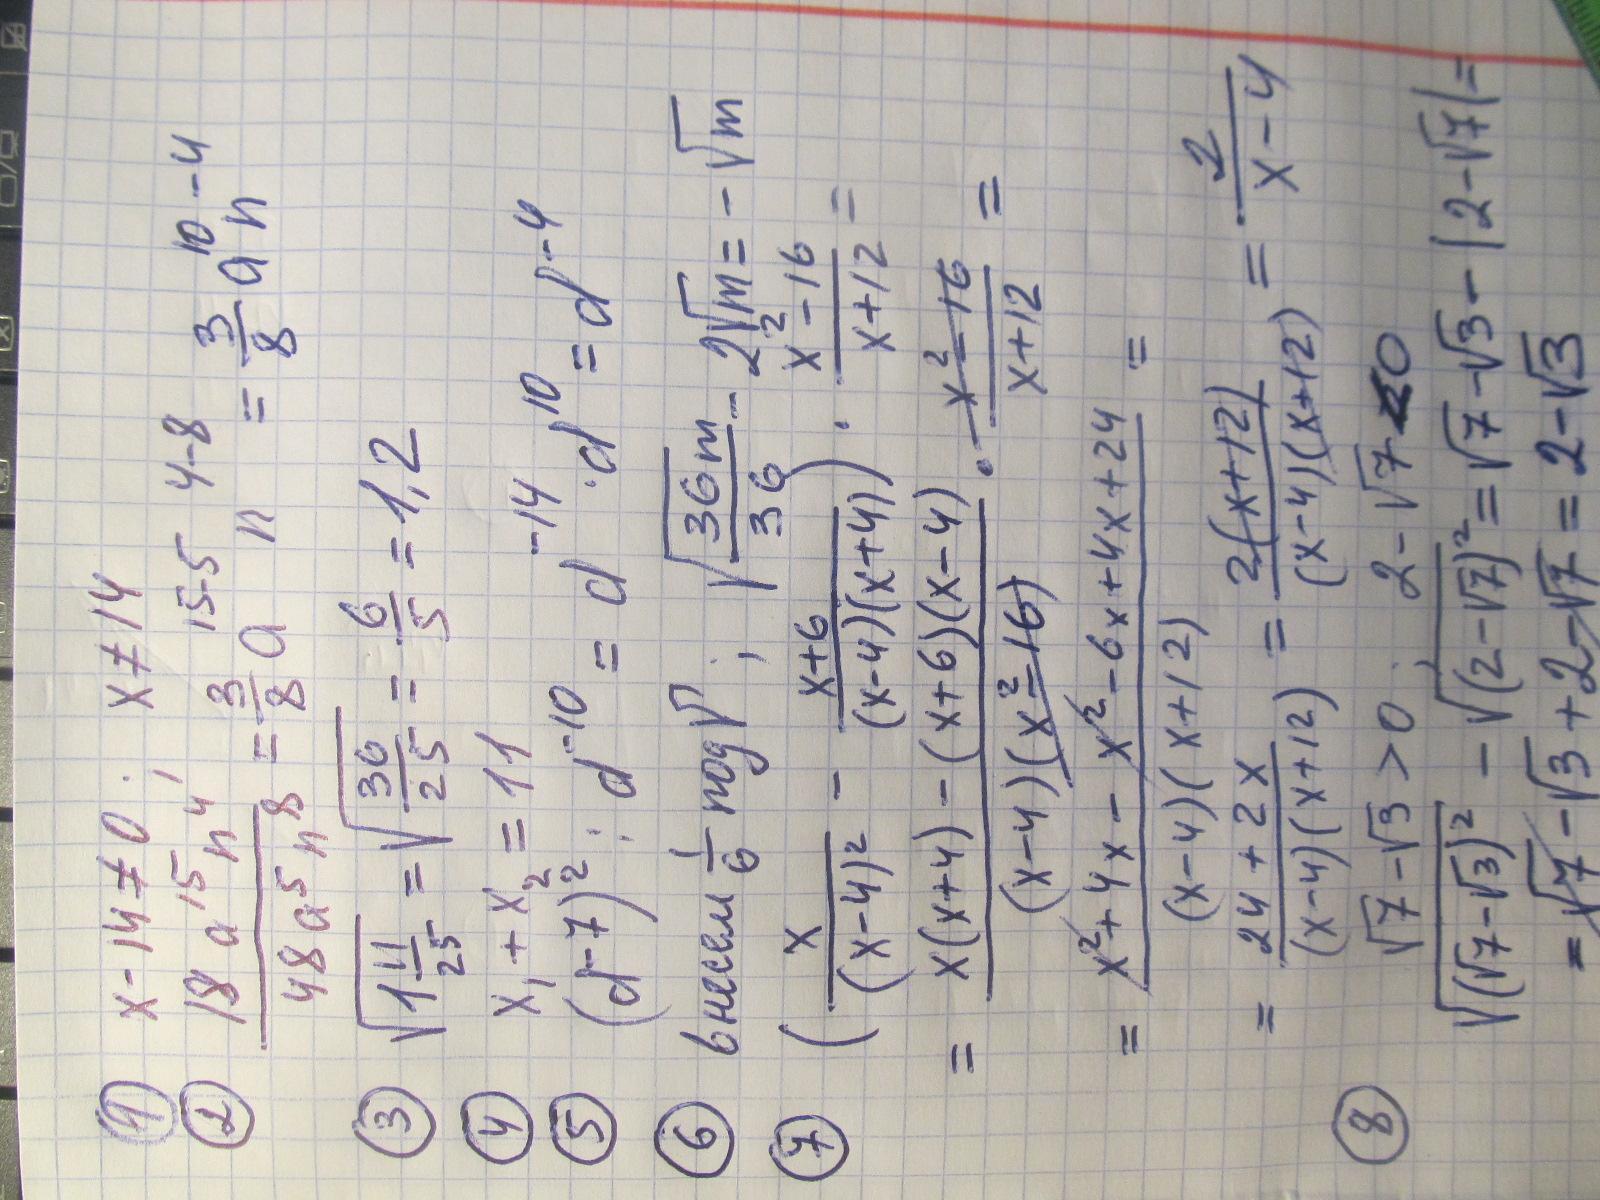 ① x-14≠0; x≠14
② 18a¹⁵n⁴/48a⁵n⁸ = 3/8 a¹⁵⁻⁵ n⁴⁻⁸ = 3/8 a¹⁰n⁻⁴
③ √(1 11/25) = √(36/25) = 6/5 = 1,2
④ x₁+x₂=11
⑤ (d⁻⁷)² : d⁻¹⁰ = d⁻¹⁴ · d¹⁰ = d⁻⁴
⑥ внесем 1/6 под √; √(36m/36) - 2√m = -√m
⑦ (x/(x-4)² - (x+6)/((x-4)(x+4))) · (x²-16)/(x+12) =
= (x(x+4)-(x+6)(x-4))/((x-4)(x²-16)) · (x²-16)/(x+12) =
= (x²+4x-x²-6x+4x+24)/((x-4)(x+12)) =
= (24+2x)/((x-4)(x+12)) = 2(x+12)/((x-4)(x+12)) = 2/(x-4)
⑧ √7-√3>0; 2-√7<0
√((√7-√3)²) - √((2-√7)²) = √7-√3-|2-√7|=
= √7-√3+2-√7 = 2-√3